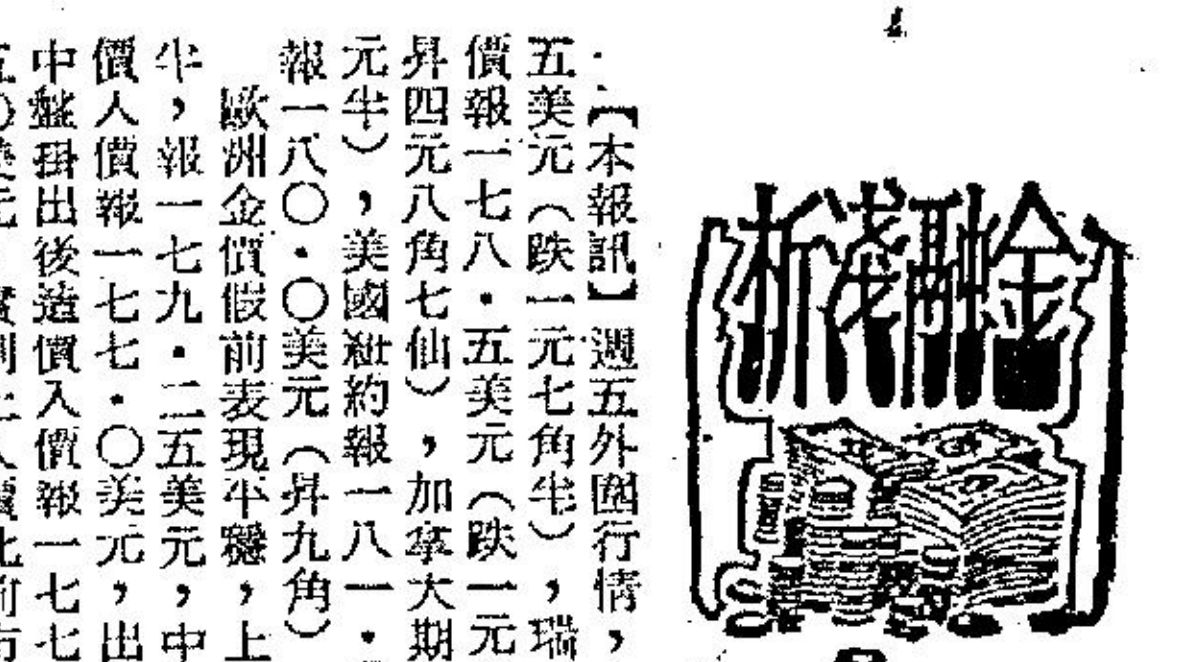 金融淺析
【本報訊】週五外圍行情，
五美元（跌一元七角半），瑞
價報一七八·五美元（跌一元
昇四元八角七仙），加拿大期
元半），美國紐約報一八一·
報一八〇·〇美元（昇九角）
歐洲金價假前表現平穩，上
半，報一七九·二五美元，中
價人價報一七七·〇美元，出
中盤掛出後造價入價報一七七